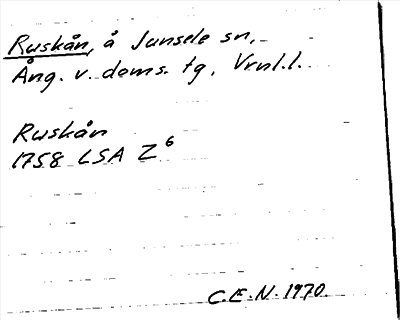 Ruskån, å Junsele sn,
Ång. v. doms. tg, Vrnl.l.
Ruskån
1758 LSA Z 6
C.E.N. 1970